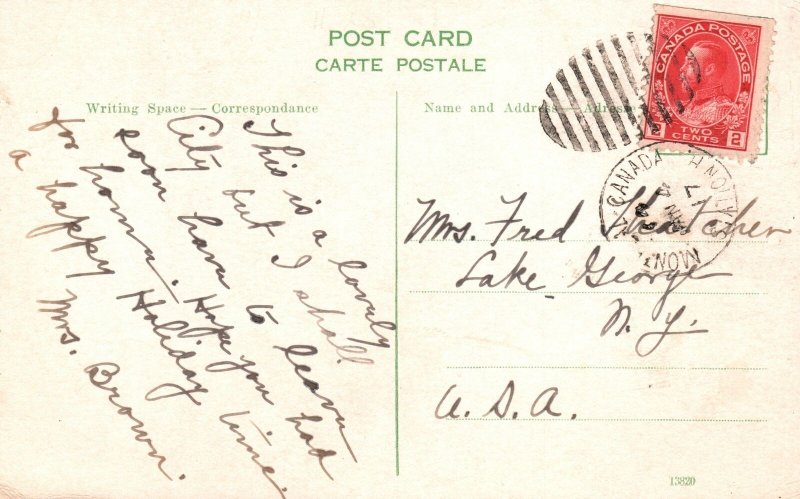 POST CARD
CARTE POSTALE
Writing Space — Correspondance
Name and Address — Adresse
CANADA POSTAGE
TWO CENTS
2
2
CANADA
This is a lovely
City but I shall
soon have to leave
for home. Hope you had
a happy Holiday time.
Mrs. Brown.
Mrs. Fred
Lake George
N. Y.
U. S. A.
13820